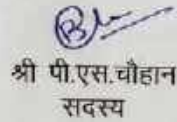 श्री पी.एस.चौहान
सदस्य